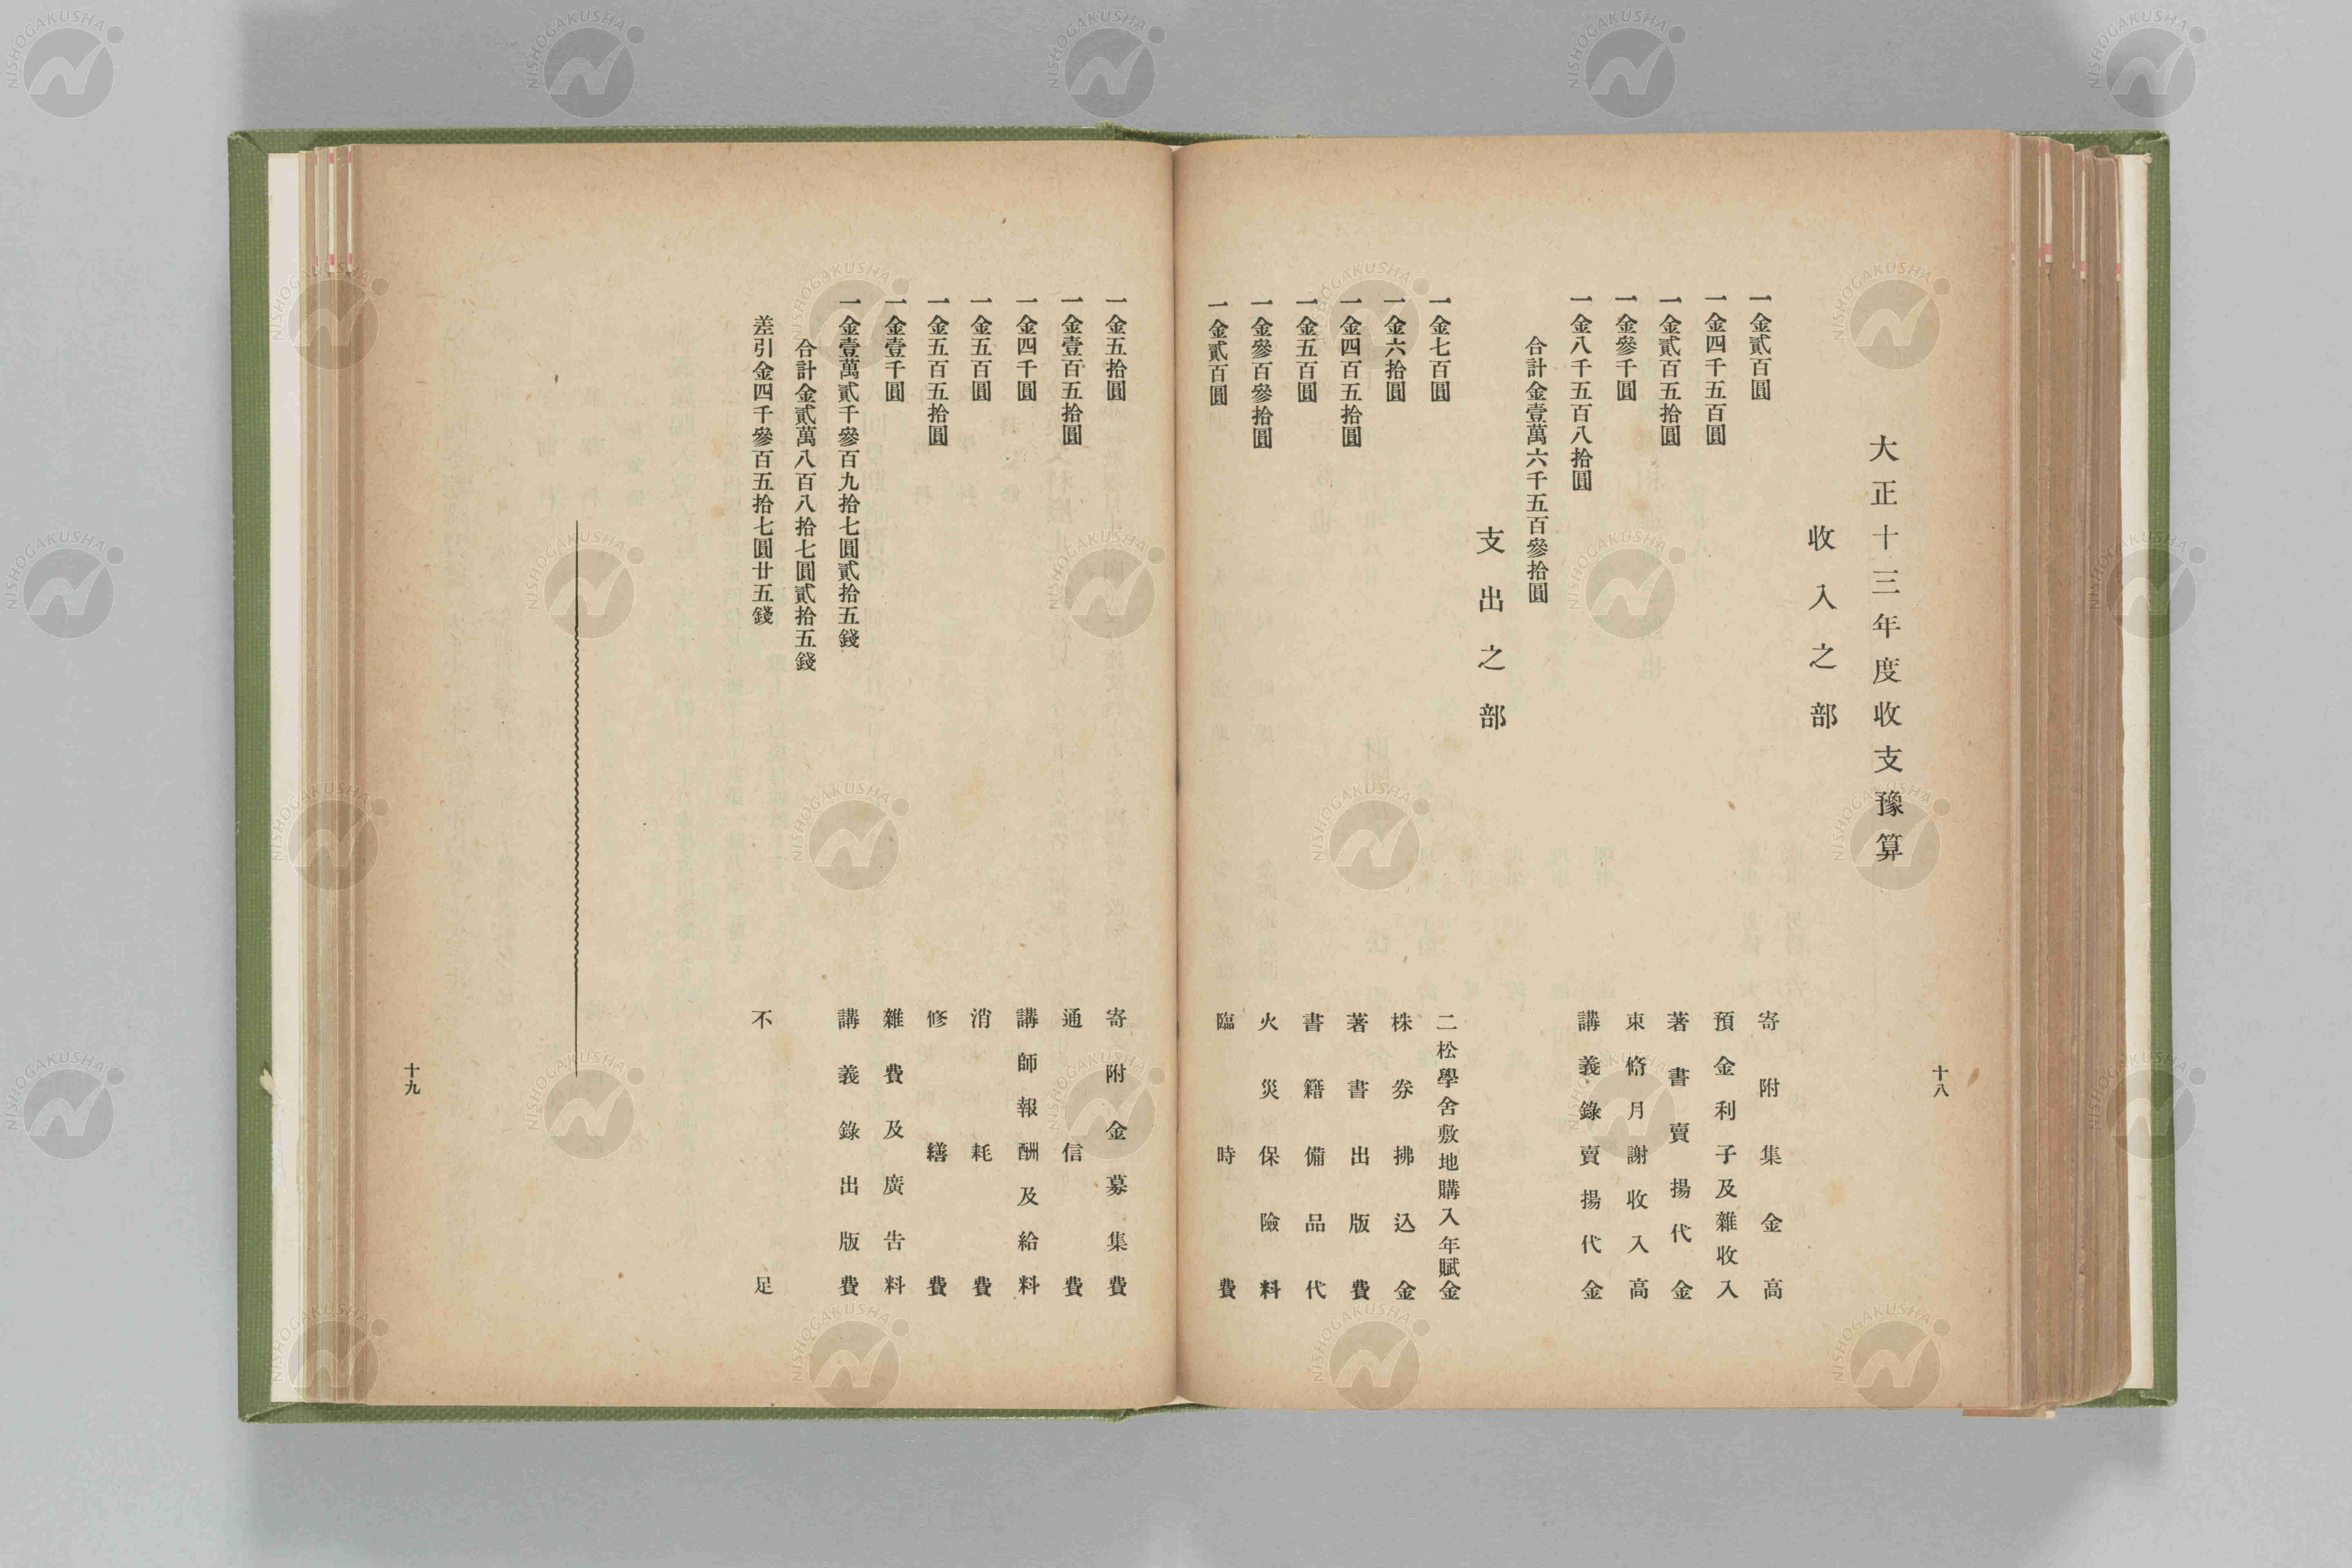 大正十三年度收支豫算
收入之部
一金貳百圓 寄附集金高
一金四千五百圓 預金利子及雜收入
一金貳百五拾圓 著書賣揚代金
一金參千圓 束脩月謝收入高
一金八千五百八拾圓 講義錄賣揚代金
合計金壹萬六千五百參拾圓
支出之部
一金七百圓 二松學舍敷地購入年賦金
一金六拾圓 株券拂込金
一金四百五拾圓 著書出版費
一金五百圓 書籍備品代
一金參百參拾圓 火災保險料
一金貳百圓 臨時費
十八
一金五拾圓 寄附金募集費
一金壹百五拾圓 通信費
一金四千圓 講師報酬及給料
一金五百圓 消耗費
一金五百五拾圓 修繕費
一金壹千圓 雜費及廣告料
一金壹萬貳千參百九拾七圓貳拾五錢 講義錄出版費
合計金貳萬八百八拾七圓貳拾五錢
差引金四千參百五拾七圓廿五錢 不足
十九
NISHOGAKUSHA